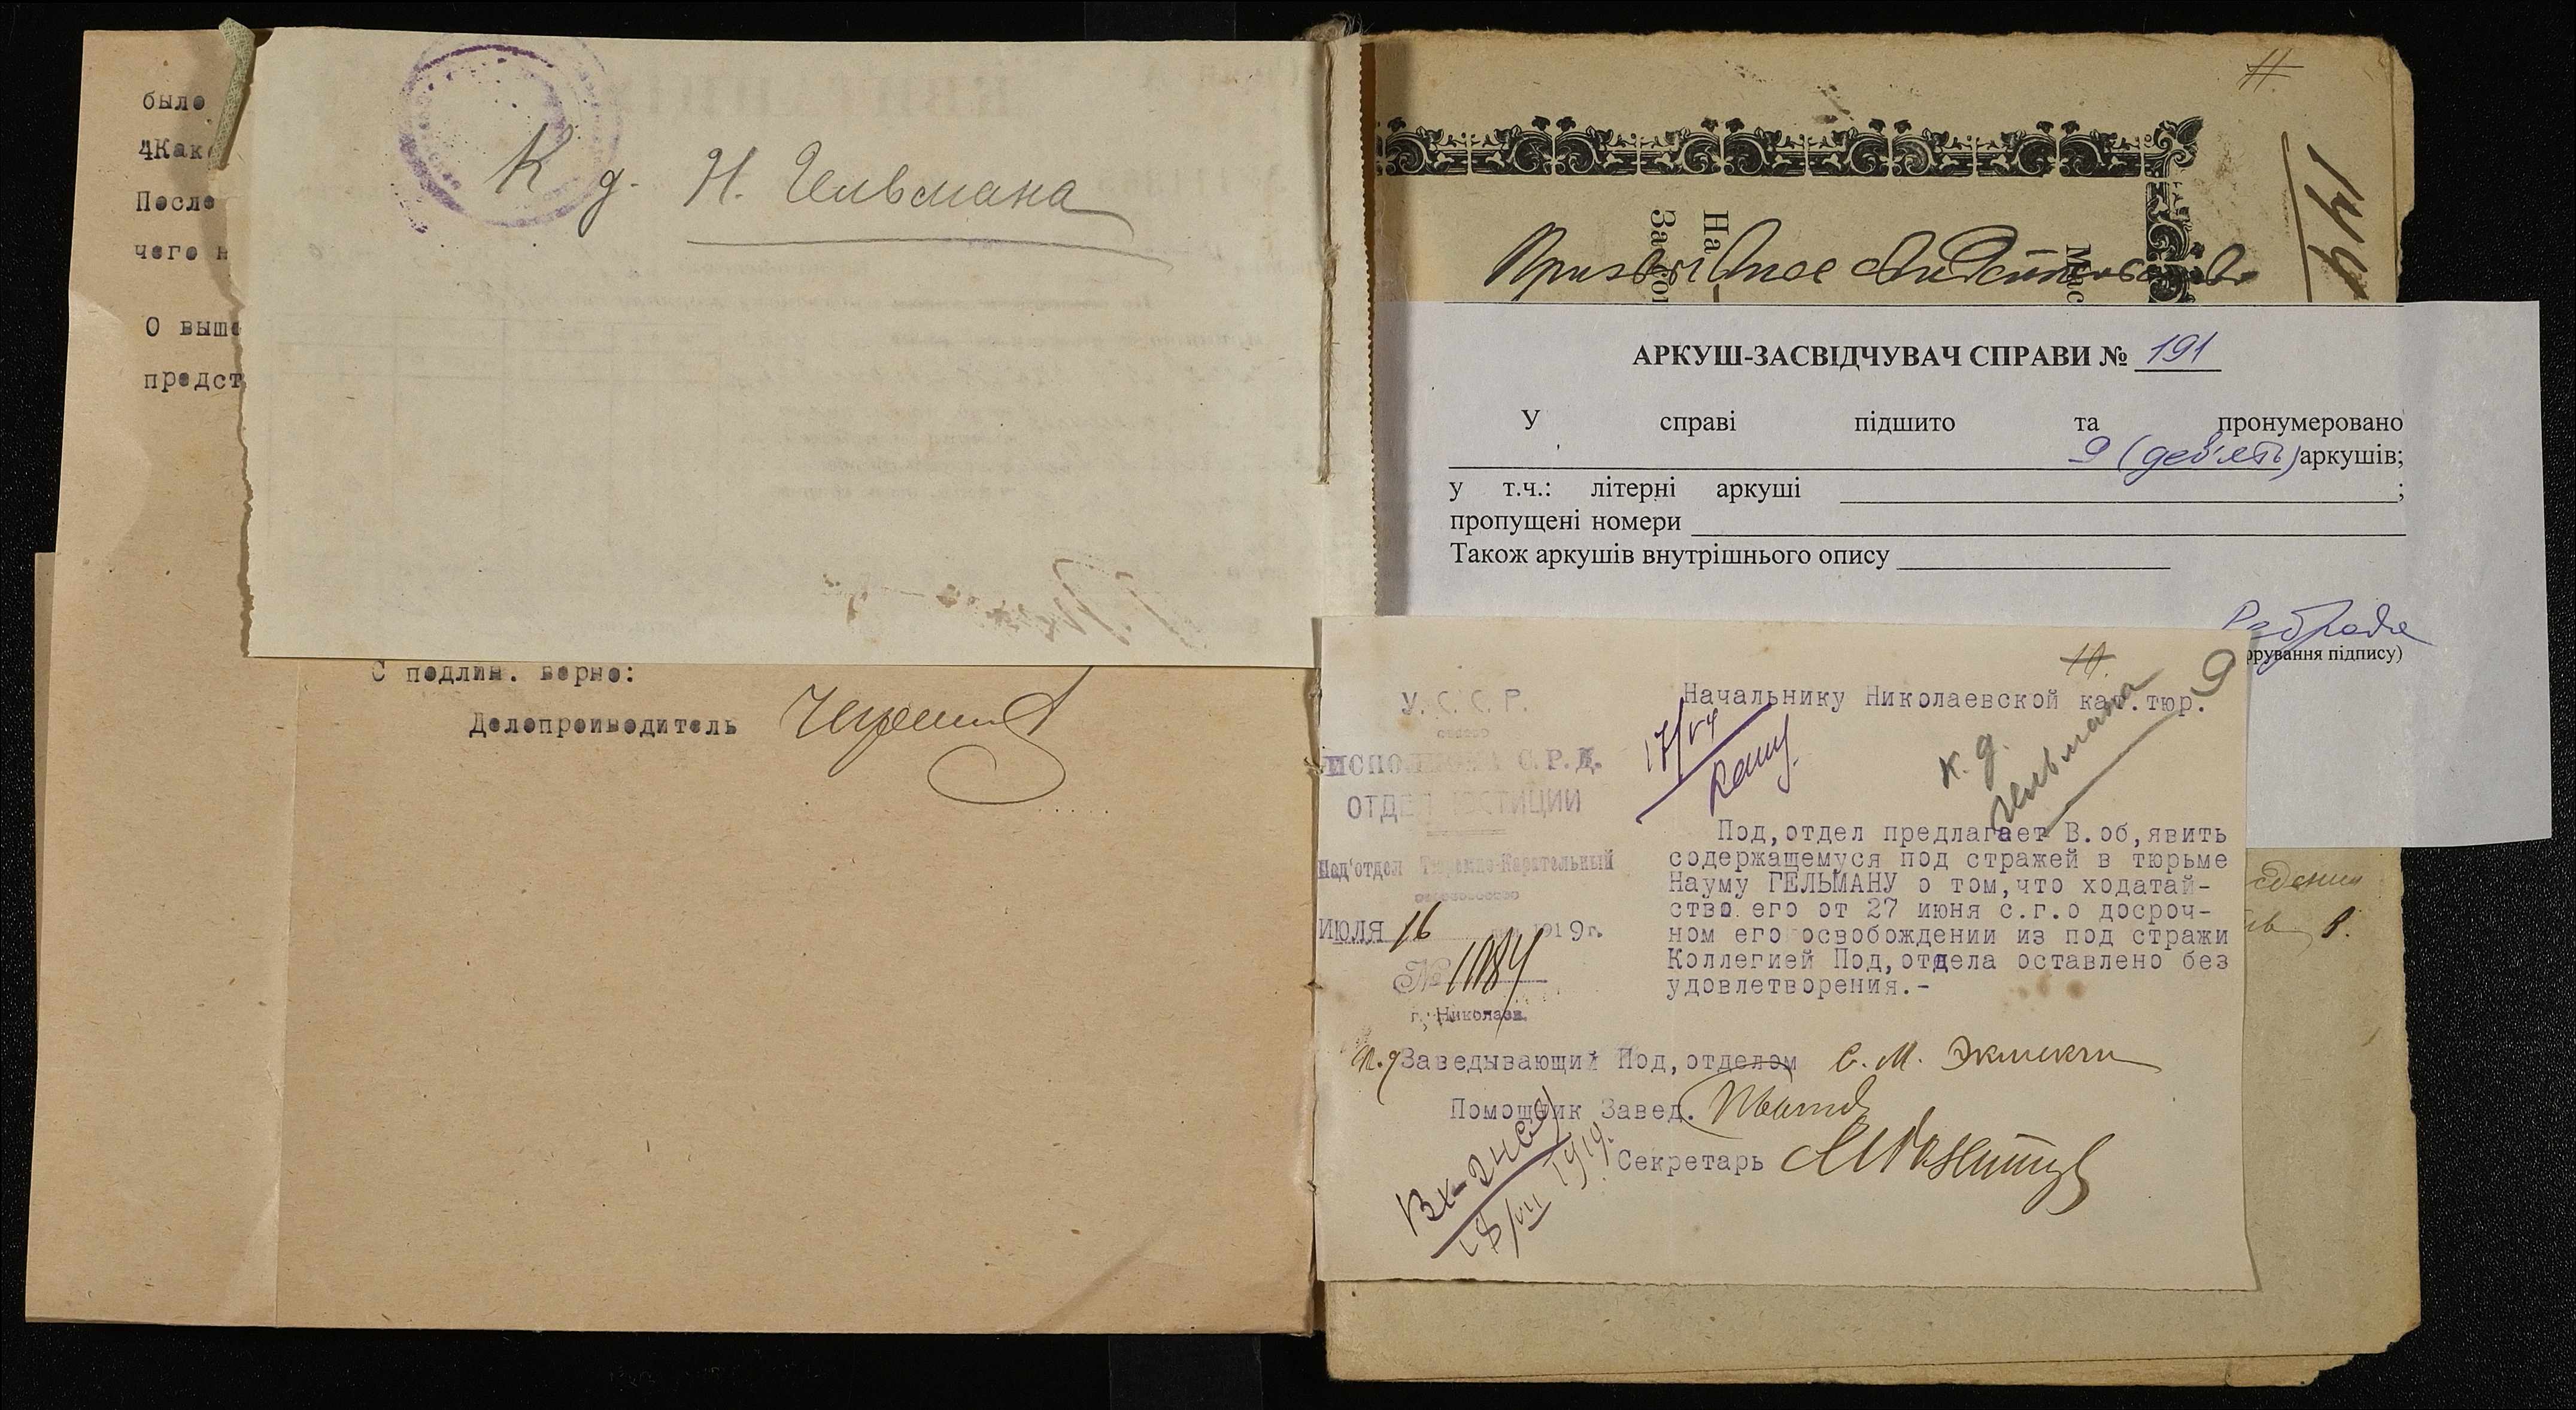 было
4Как
После
чего н
О выше
предст
К д. Н. Гельмана
С подлин. верно:
Делопроизводитель
11
149
На
За
Мас
АРКУШ-ЗАСВІДЧУВАЧ СПРАВИ № 191
У справі підшито та пронумеровано
9 (дев'ять) аркушів;
у т.ч.: літерні аркуші ;
пропущені номери
Також аркушів внутрішнього опису
орування підпису)
9
У. С. С. Р.
ИСПОЛКОМА С.Р.Д.
ОТДЕЛ ЮСТИЦИИ
Под'отдел Тюремно-Карательный
Июля 16 1919г.
№ 1084
г. Николаев.
Начальнику Николаевской кат.тюр.
к. д.
Гельмана
Под,отдел предлагает В.об,явить
содержащемуся под стражей в тюрьме
Науму ГЕЛЬМАНУ о том,что ходатай-
ство его от 27 июня с.г.о досроч-
ном его освобождении из под стражи
Коллегией Под,отдела оставлено без
удовлетворения.-
Заведывающий Под,отделом С. М.
Помощник Завед.
Секретарь
18/VII 1919.